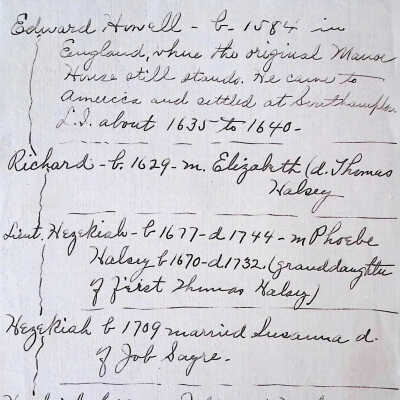 Edward Howell - b. 1584 in
England, where the original Manor
House still stands. He came to
America and settled at Southampton
L.I. about 1635 to 1640 -
Richard - b. 1629 - m. Elizabeth (d. Thomas
Halsey
Lieut. Hezekiah - b 1677 - d 1744 - m Phoebe
Halsey b 1670 - d 1732. (granddaughter
of first Thomas Halsey)
Hezekiah b 1709 married Susanna d.
of Job Sayre -